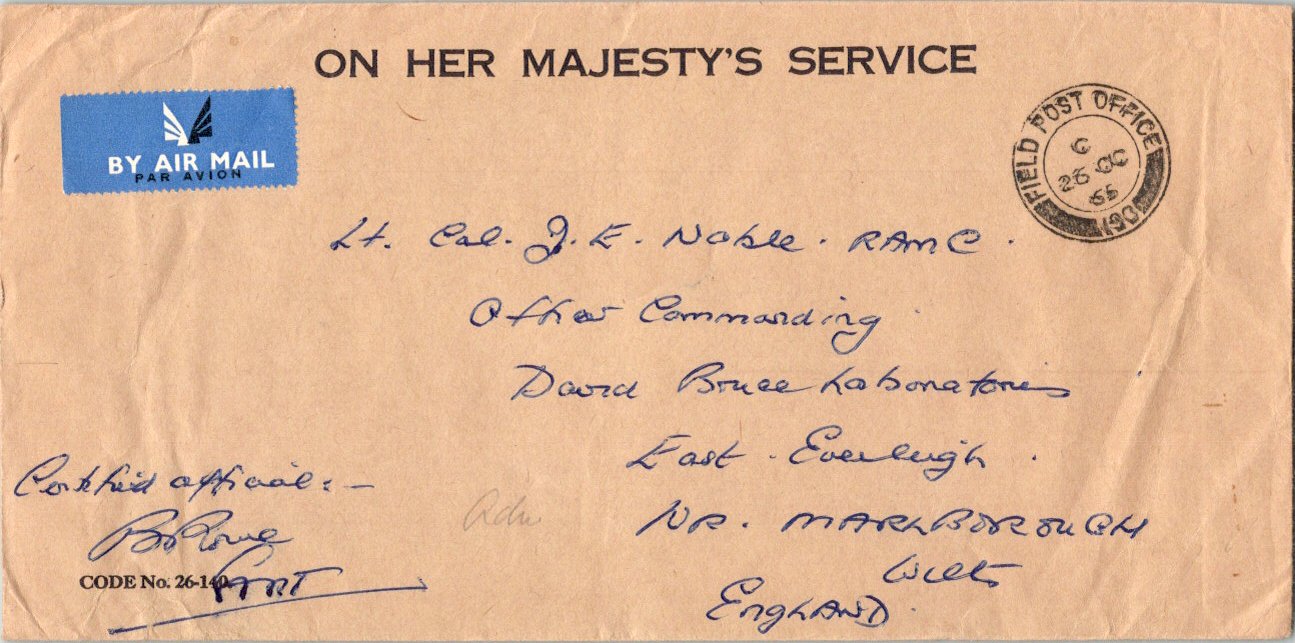 ON HER MAJESTY'S SERVICE
BY AIR MAIL
PAR AVION
FIELD POST OFFICE
C
26 OC
65
190
Lt. Col. J. E. Noble. RAMC.
Officer Commanding
David Bruce Laboratories
East Everleigh.
NR. MARLBOROUGH
Wilts
ENGLAND.
Certified official:-
CODE No. 26-140